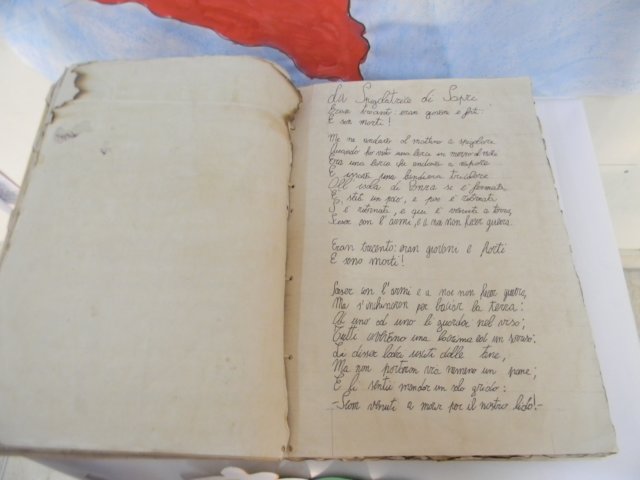 La Spigolatrice di Sapri
Eran trecento: eran giovani e forti:
E son morti!
Me ne andavo al mattino a spigolare
Quando ho visto una barca in mezzo al mare
Era una barca che andava a vapore
E issava una bandiera tricolore
All'isola di Ponza si è fermata
È stata un pò, e poi è ritornata
S'è ritornata, e qui è venuta a terra,
Sceser con l'armi, e a noi non fecer guerra.
Eran trecento: eran giovani e forti
E sono morti!
Sceser con l'armi e a noi non fecer guerra,
Ma s'inchinaron per baciar la terra:
Ad uno ad uno li guardai nel viso;
Tutti avevano una lacrima ed un sorriso;
Li disser ladri usciti dalle tane,
Ma non portaron via nemmeno un pane;
E li sentii mandar un solo grido:
-Siam venuti a morir per il nostro lido!-